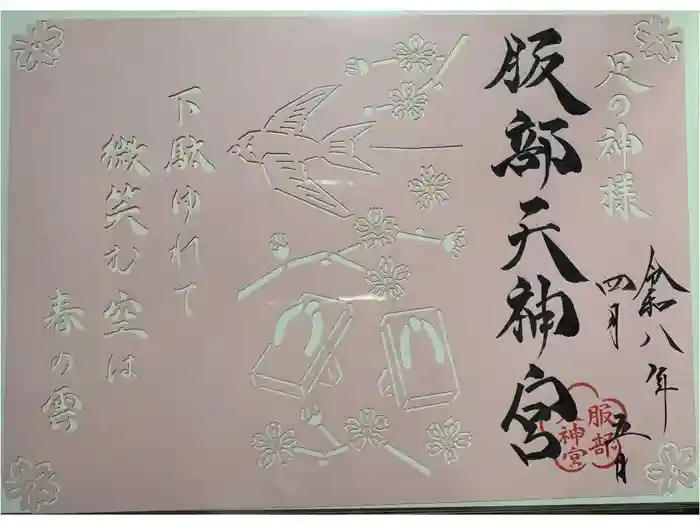 足の神様
服部天神宮
令和八年
四月
五日
服部
天神宮
下駄ゆれて
微笑む空は
春の雲